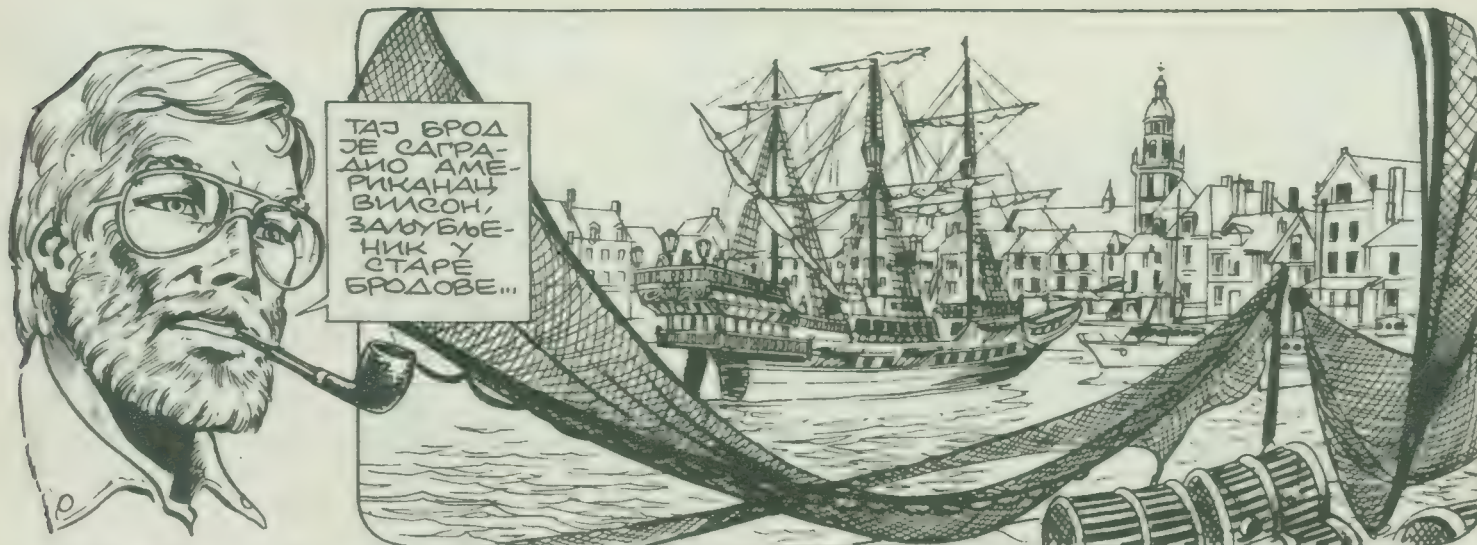 ТАЈ БРОД
ЈЕ САГРА-
ДИО АМЕ-
РИКАНАЦ
ВИЛСОН,
ЗАЉУБЉЕ-
НИК У
СТАРЕ
БРОДОВЕ...